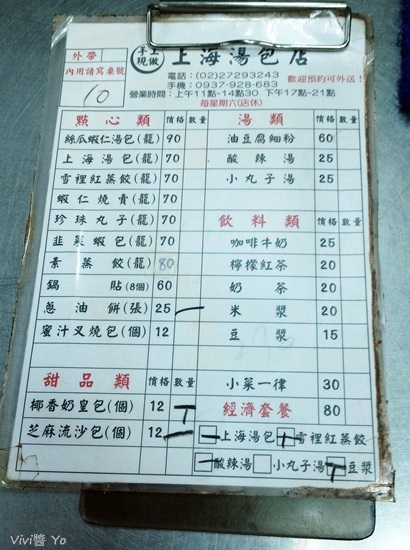 外帶
內用請寫桌號
10
手工現做 上海湯包店
電話：(02)27293243
手機：0937-928-683
歡迎預約可外送！
營業時間：上午11點~14點30 下午17點~21點
每星期六(店休)
點心類 價格 數量
絲瓜蝦仁湯包(籠) 90
上海湯包(籠) 70
雪裡紅蒸餃(籠) 70
蝦仁燒賣(籠) 70
珍珠丸子(籠) 70
韭菜蝦包(籠) 70
素蒸餃(籠) 80
鍋貼(8個) 60
蔥油餅(張) 25 一
蜜汁叉燒包(個) 12
甜品類 價格 數量
椰香奶皇包(個) 12
芝麻流沙包(個) 12 一
湯類 價格 數量
油豆腐細粉 60
酸辣湯 25
小丸子湯 25
飲料類 價格 數量
咖啡牛奶 25
檸檬紅茶 20
奶茶 20
米漿 20
豆漿 15
小菜一律 30
經濟套餐 80
上海湯包 雪裡紅蒸餃
酸辣湯 小丸子湯 豆漿
Vivi醬 Yo